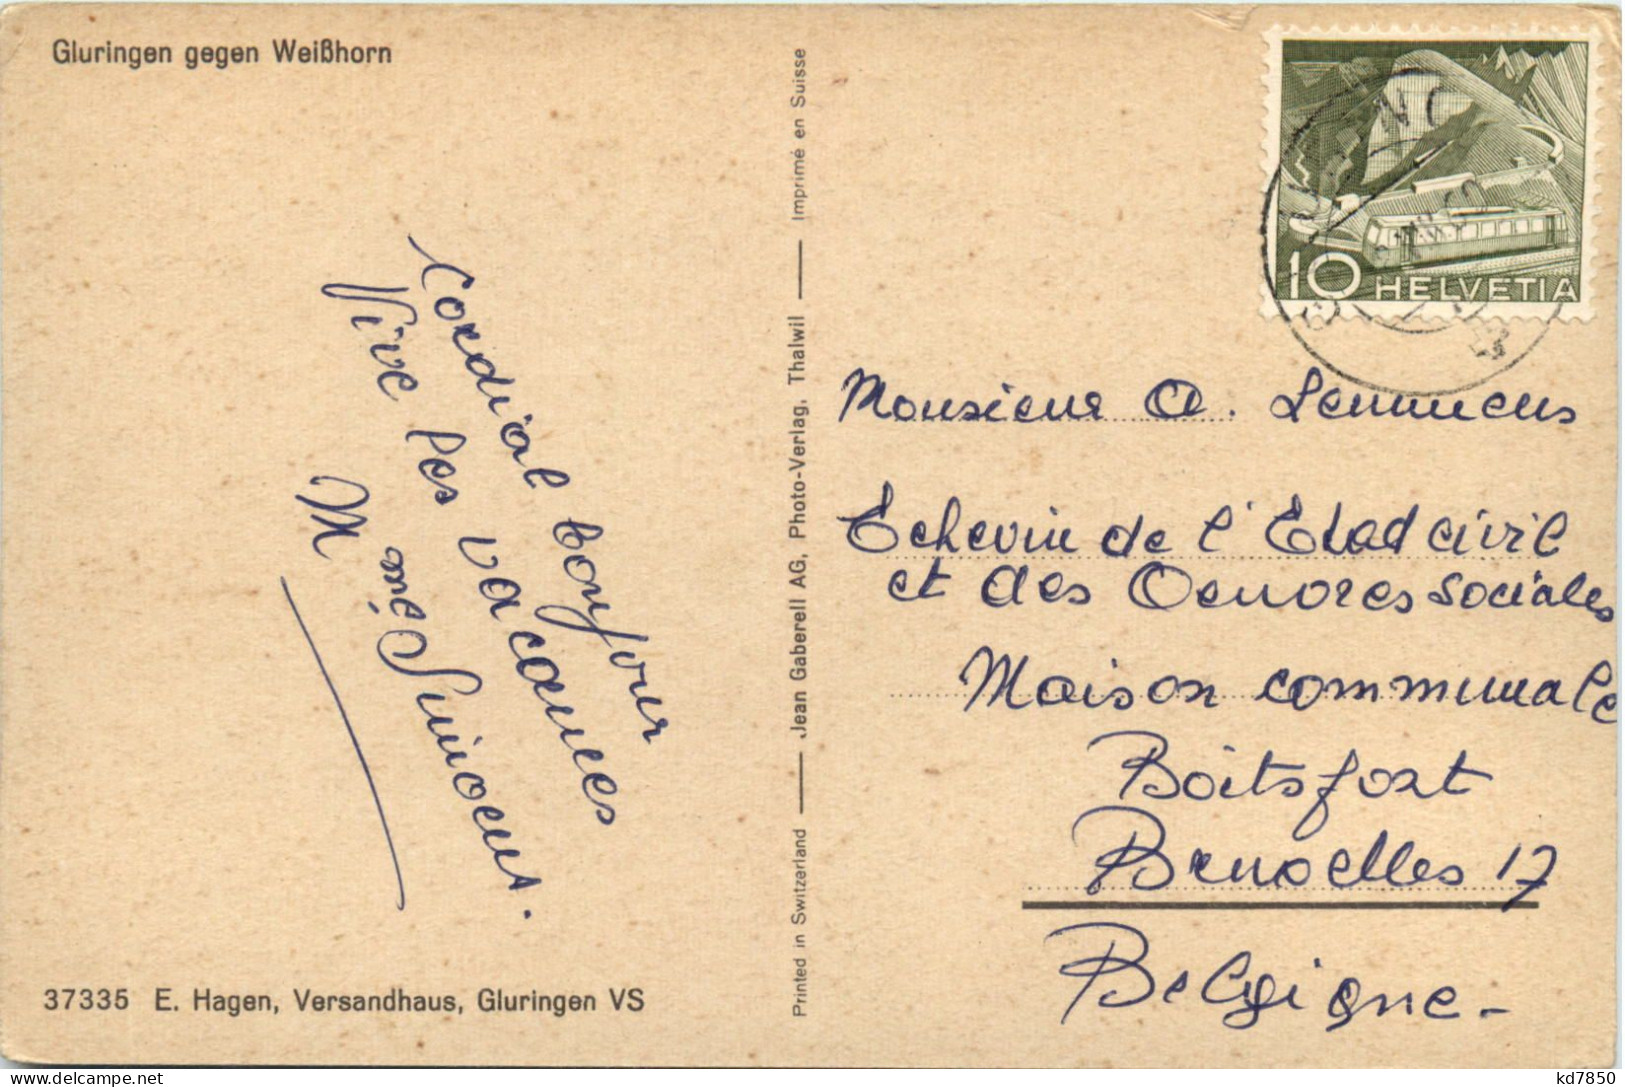 Gluringen gegen Weißhorn
Cordial bonjour
Vive les vacances
Mme Simoens.
37335 E. Hagen, Versandhaus, Gluringen VS
Printed in Switzerland — Jean Gaberell AG, Photo-Verlag, Thalwil — Imprimé en Suisse
10 HELVETIA
Monsieur A. Lemmens
Echevin de l'Etat civil
et des Oeuvres sociales
Maison communale
Boitsfort
Bruxelles 17
Belgique -
kd7850